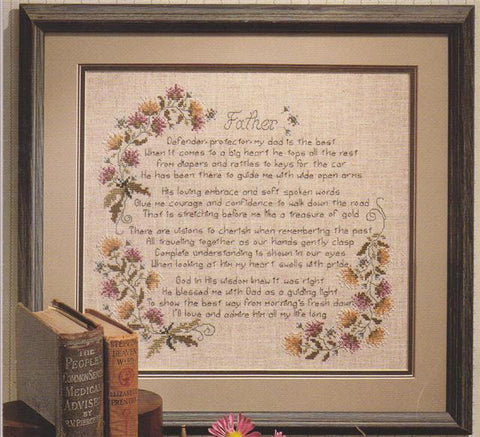 Father
Defender, protector, my dad is the best
When it comes to a big heart he tops all the rest
From diapers and rattles to keys for the car
He has been there to guide me with wide open arms
His loving embrace and soft spoken words
Give me courage and confidence to walk down the road
That is stretching before me like a treasure of gold
There are visions to cherish when remembering the past
All traveling together as our hands gently clasp
Complete understanding is shown in our eyes
When looking at him my heart swells with pride
God in His wisdom knew it was right
He blessed me with Dad as a guiding light
To show the best way from morning's fresh dawn
I'll love and admire him all my life long
THE
PEOPLE'S
COMMON SENSE
MEDICAL
ADVISER
BY
R.V. PIERCE
HEAVEN
ELIZABETH